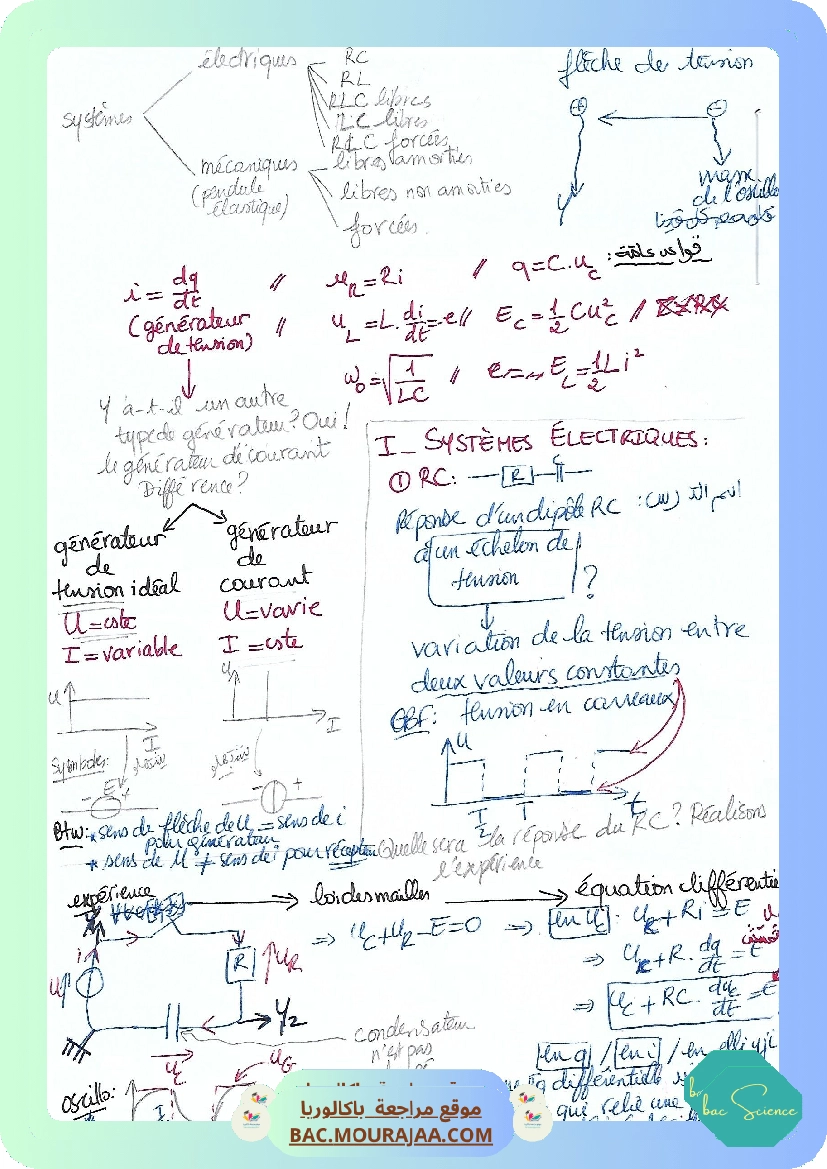 électriques
RC
RL
RLC libres
LC libres
RLC forcées
systèmes
mécaniques
(pendule
élastique)
libres amorties
libres non amorties
forcées.
flèche de tension
+
−
y
masse
de l'oscillo
قواعد عامة:
i = dq/dt // u_R = Ri // q = C.u_C
(générateur
de tension) // u_L = L.di/dt = -e // E_C = 1/2 C u²_C //
ω₀ = √(1/LC) // E_L = 1/2 L i²
Y a-t-il un autre
type de générateur? Oui!
le générateur de courant
Différence?
générateur
de
tension idéal
U = cste
I = variable
générateur
de
courant
U = varie
I = cste
U
I
U
I
Symboles:
E
+
+
Btw: * sens de flèche de U = sens de i
pour générateur
* sens de U ≠ sens de i pour récepteur
I_ SYSTÈMES ÉLECTRIQUES:
① RC: R C
Réponse d'un dipôle RC
à un échelon de
tension ?
variation de la tension entre
deux valeurs constantes
GBF: tension en carreaux
U
T/2
T
t
Quelle sera la réponse du RC? Réalisons
l'expérience
expérience
loi des mailles
équation différentie
⇒ u_C + u_R − E = 0 ⇒ en u_C : u_C + Ri = E
⇒ u_C + R.dq/dt = E
⇒ u_C + RC.du_C/dt = E
i
U
R
u_R
Y₂
condensateur
n'est pas
u_C
u_G
en q / en i / en
différentielle
qui relie une
oscillo:
bac Science
موقع مراجعة باكالوريا
BAC.MOURAJAA.COM